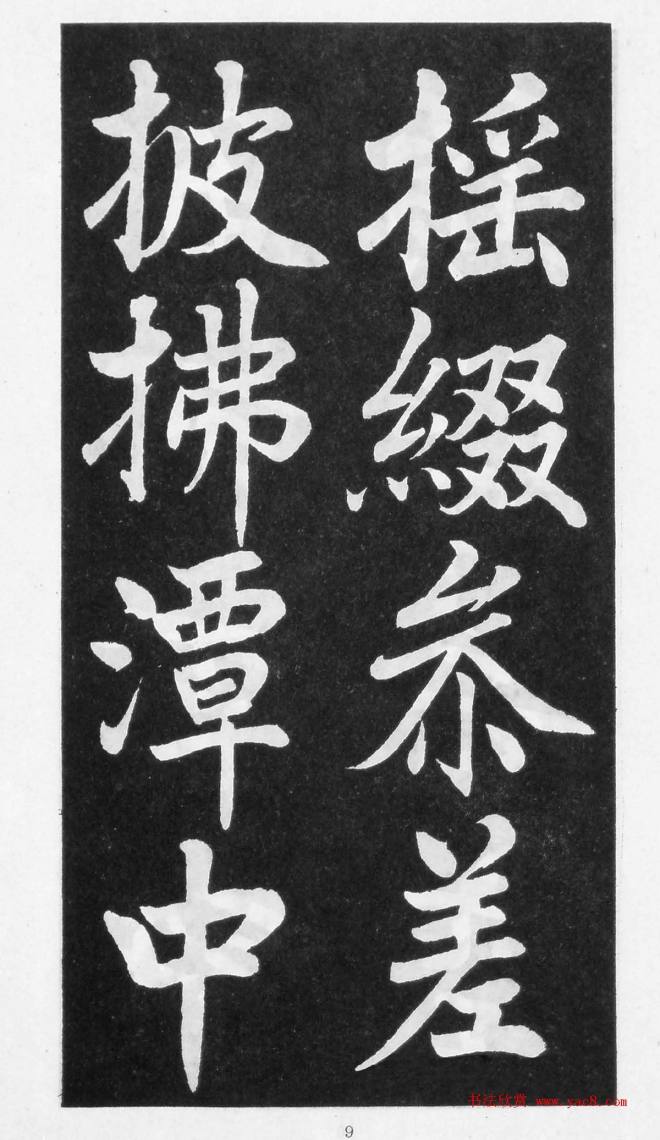 摇綴参差
披拂潭中
书法欣赏 www.yac8.com
9